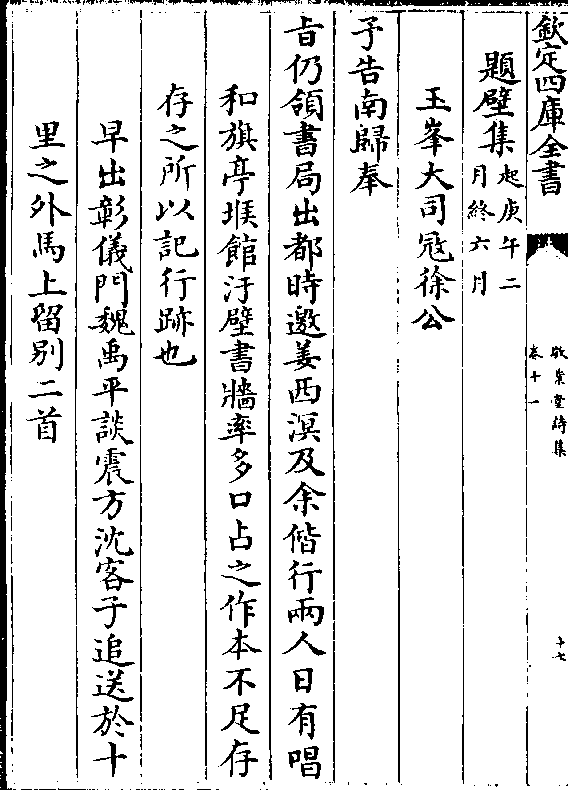 欽定四庫全書
敬業堂詩集
卷十一
十七
題壁集起庚午二
月終六月
玉峯大司冦徐公
予告南歸奉
㫖仍領書局出都時邀姜西溟及余偕行兩人日有唱
和旗亭堠館汙壁書牆率多口占之作本不足存
存之所以記行跡也
早出彰儀門魏禹平談震方沈客子追送於十
里之外馬上留别二首